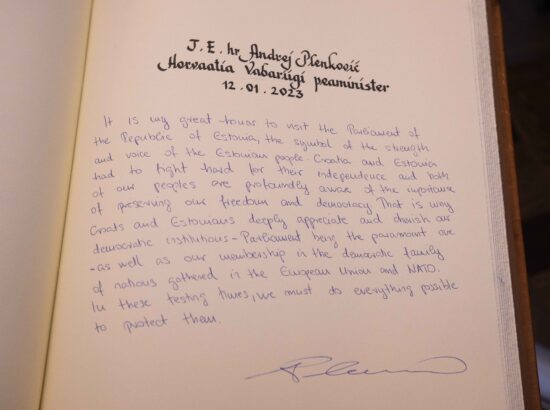 J. E. hr Andrej Plenković
Horvaatia Vabariigi peaminister
12.01.2023
It is my great honor to visit the Parliament of
the Republic of Estonia, the symbol of the strength
and voice of the Estonian people. Croatia and Estonia
had to fight hard for their independence and both
of our peoples are profoundly aware of the importance
of preserving our freedom and democracy. That is why
Croats and Estonians deeply appreciate and cherish our
democratic institutions - Parliament being the paramount one
- as well as our membership in the democratic family
of nations gathered in the European Union and NATO.
In these testing times, we must do everything possible
to protect them.